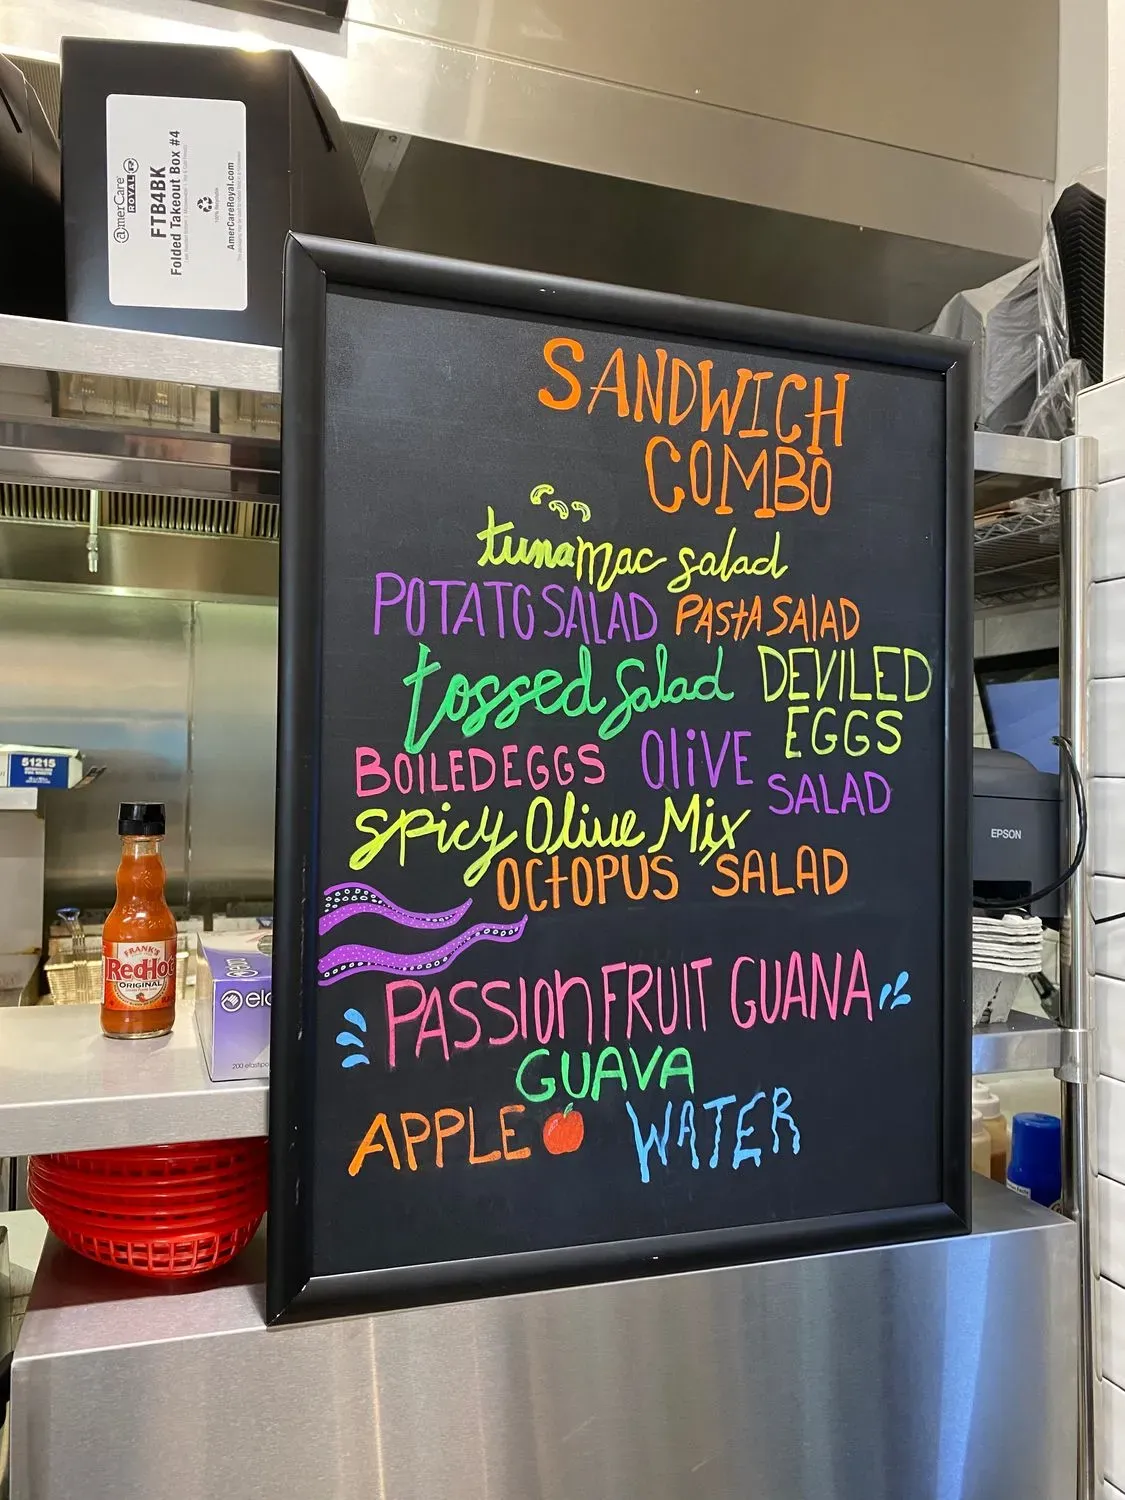 amerCare
ROYAL
FTB4BK
Folded Takeout Box #4
100% Recyclable
AmerCareRoyal.com
SANDWICH
COMBO
tuna mac salad
POTATO SALAD PASTA SALAD
tossed salad DEVILED
EGGS
BOILED EGGS OLIVE
SALAD
spicy Olive Mix
OCTOPUS SALAD
PASSION FRUIT GUANA
GUAVA
APPLE WATER
51215
FRANK'S
RedHot
ORIGINAL
elo
200
EPSON